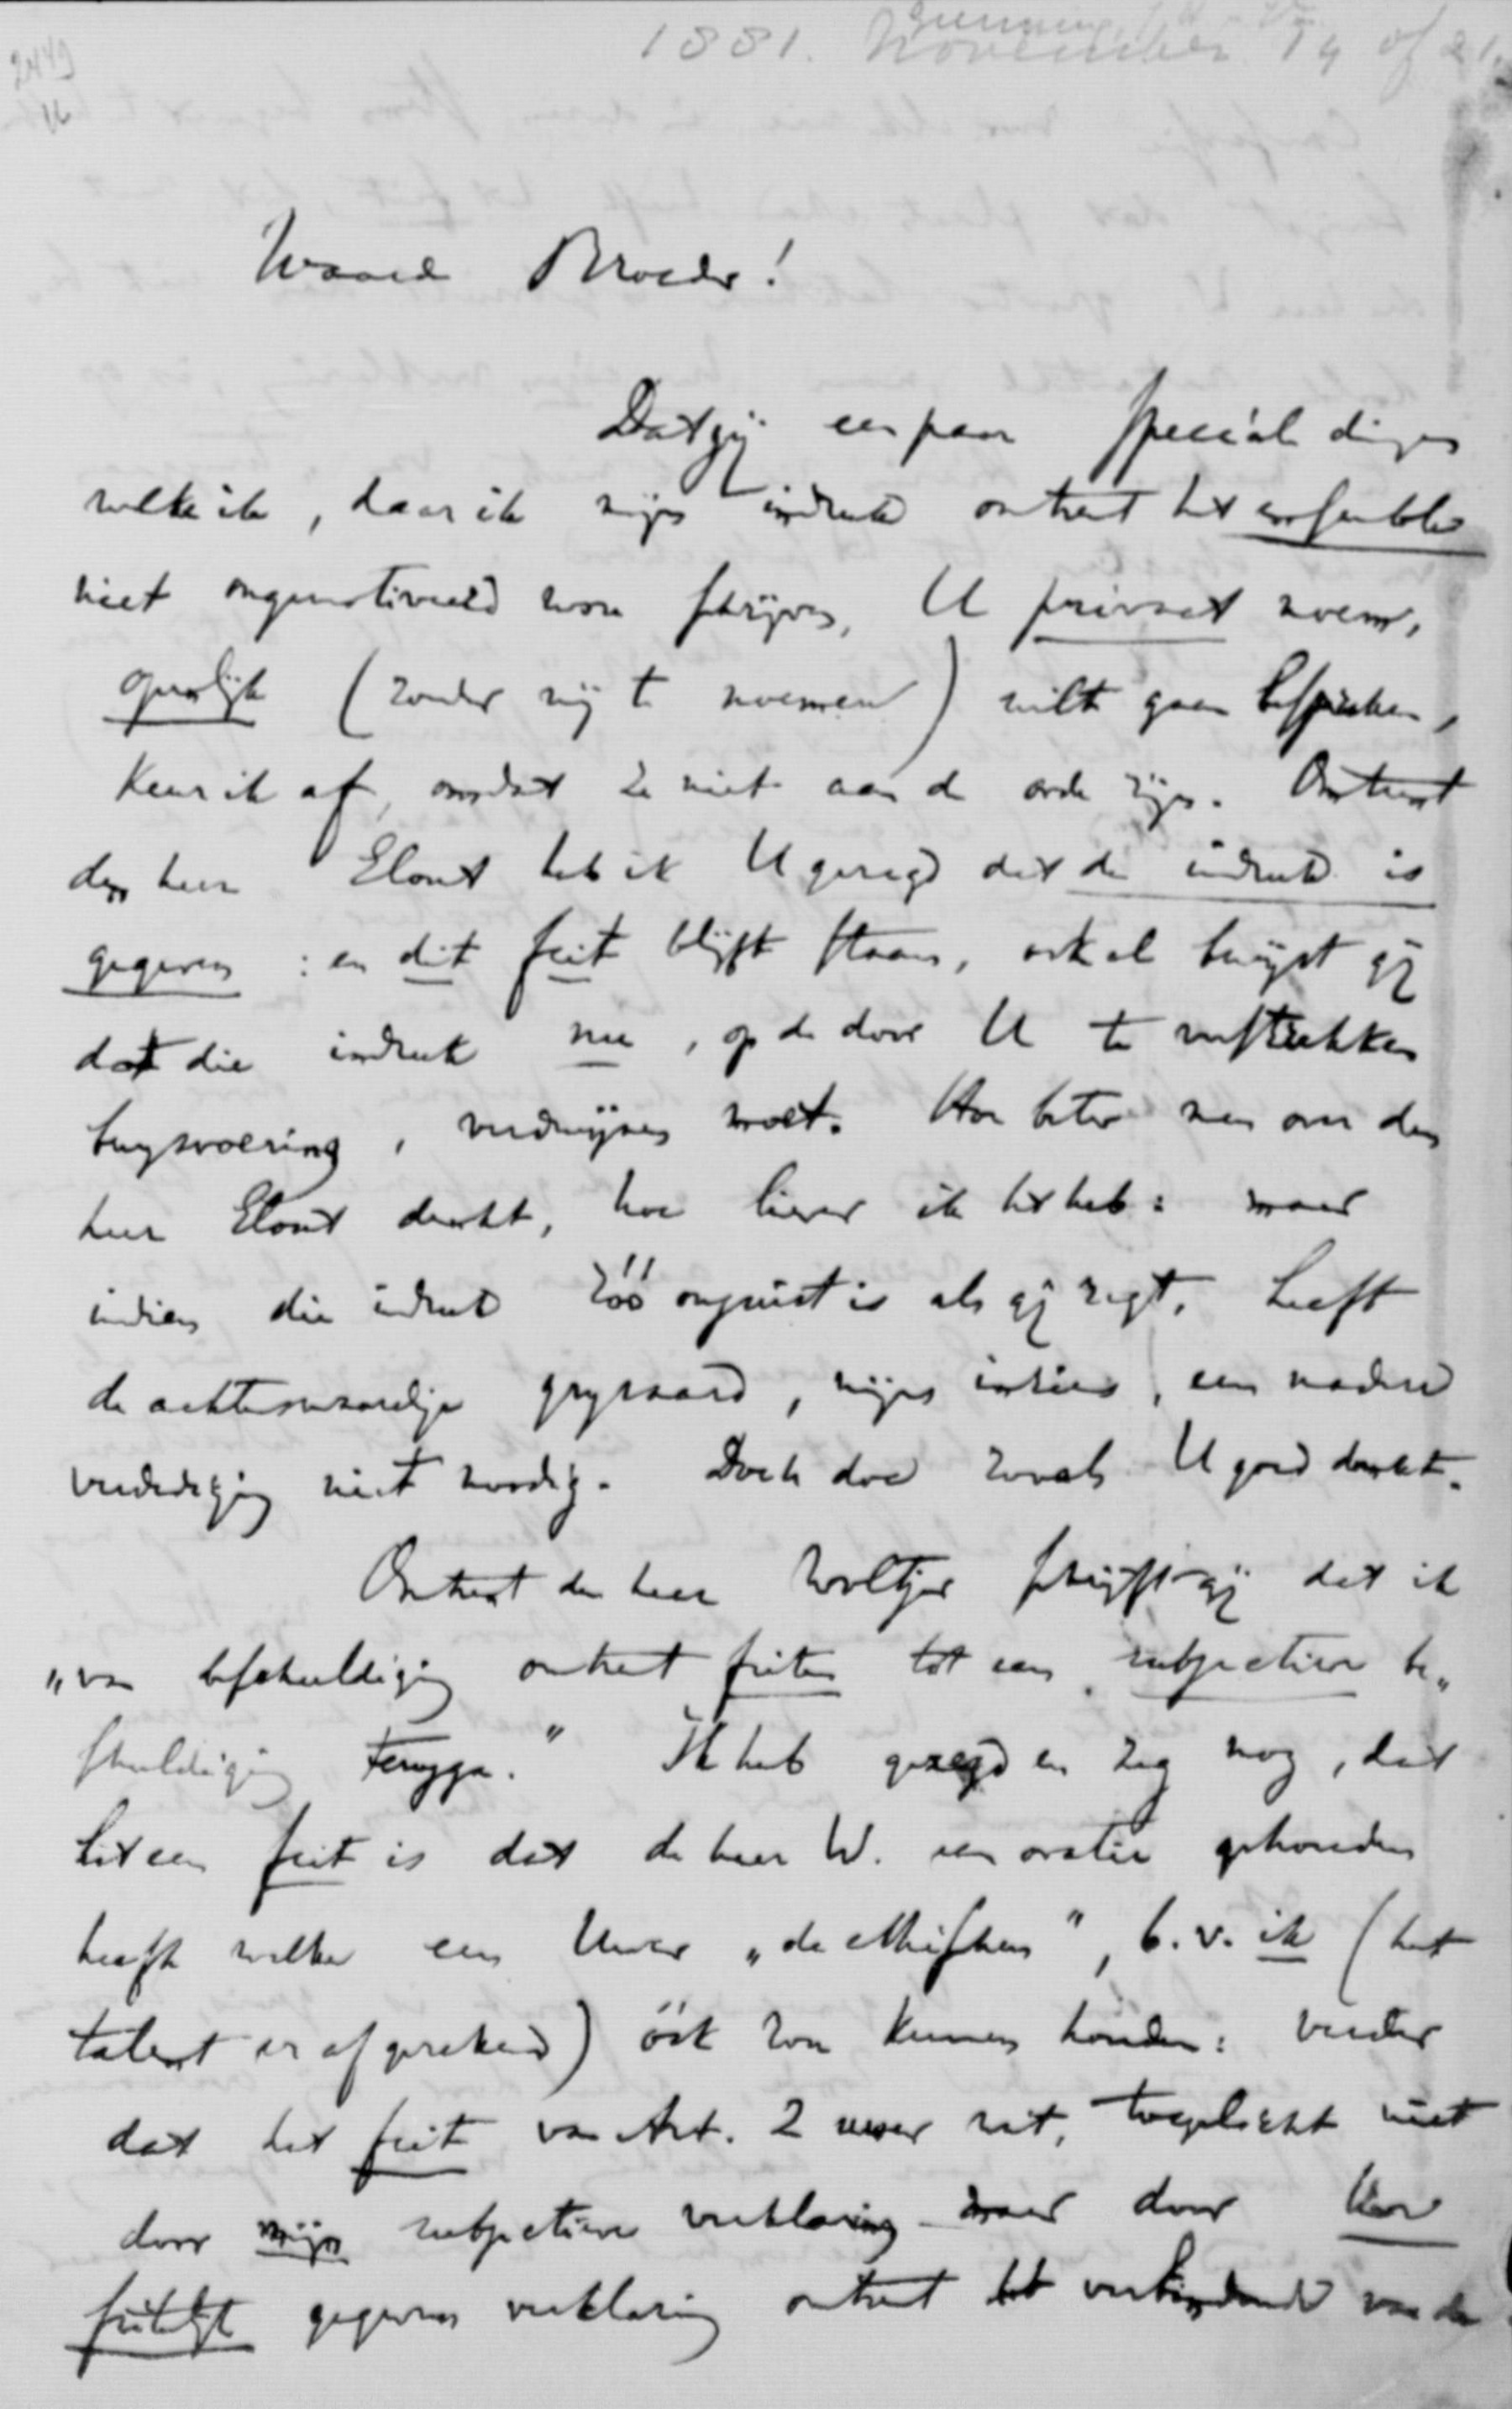 2449
16
Gunning, J.H.
1881. November 14 of 21.
Waarde Broeder!
Dat gij een paar speciale dingen
welke ik, daar ik mijn indruk omtrent het ensemble
niet ongemotiveerd wou schrijven, U privaat noem,
openlijk (zonder mij te noemen) wilt gaan bespreken,
keur ik af, omdat ze niet aan de orde zijn. Omtrent
den heer Elout heb ik U gezegd dat de indruk is
gegeven: en dit feit blijft staan, ook al bewijst gij
dat die indruk nu, op de door U te verstrekken
bewijsvoering, verdwijnen moet. Hoe beter men over den
heer Elout denkt, hoe liever ik het heb: maar
indien die indruk zóó onjuist is als gij zegt, heeft
de achtenswaardige grijsaard, mijns inziens, een nadere
verdediging niet noodig. Doch doe zooals U goed dunkt.
Omtrent den heer Woltjer schrijft gij dat ik
„van beschuldiging omtrent feiten tot een subjectieve be„
schuldiging terugga." Ik heb gezegd en zeg nog, dat
het een feit is dat de heer W. een oratie gehouden
heeft welke een Uwer „de ethischen", b.v. ik (het
talent er af gerekend) óók zou kunnen houden: verder
dat het feit van Art. 2 uwer toegelicht niet
door mijn subjectieve verklaring maar door Uw
feitelijk gegeven verklaring omtrent het verbindende van de